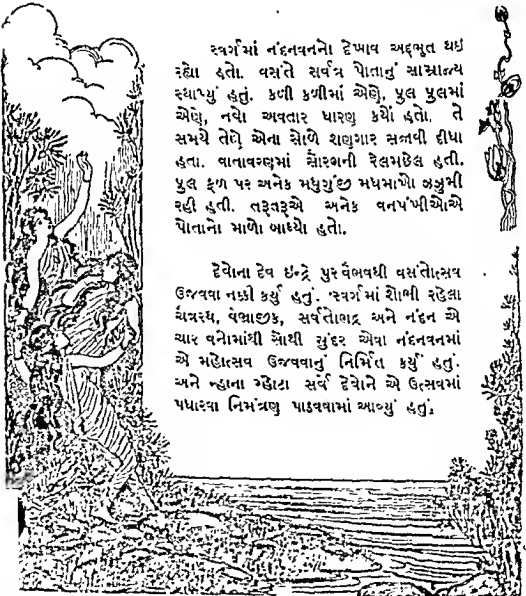 સ્વર્ગમાં નંદનવનનો દેખાવ અદ્દભૂત થઇ
રહ્યો હતો. વસંતે સર્વત્ર પોતાનું સામ્રાજ્ય
સ્થાપ્યું હતું. કળી કળીમાં એણે, પુલ પુલમાં
એણે, નવો અવતાર ધારણ કર્યો હતો. તે
સમયે તેણે એના સોળે શણગાર સજાવી દીધા
હતા. વાતાવરણમાં સૌરભની રેલમછેલ હતી.
પુલ ફળ પર અનેક મધુગુંજી મધમાખો ઝઝુમી
રહી હતી. તરૂતરૂએ અનેક વનપંખીઓએ
પોતાનો માળો બાંધ્યો હતો.
દેવોના દેવ ઇન્દ્રે પુર વૈભવથી વસંતોત્સવ
ઉજવવા નક્કી કર્યું હતું. સ્વર્ગમાં શોભી રહેલા
ચૈત્રરથ, વૈભ્રાજીક, સર્વતોભદ્ર અને નંદન એ
ચાર વનોમાંથી સૌથી સુંદર એવા નંદનવનમાં
એ મહોત્સવ ઉજવવાનું નિર્મિત કર્યું હતું.
અને ન્હાના મ્હોટા સર્વ દેવોને એ ઉત્સવમાં
પધારવા નિમંત્રણ પાઠવવામાં આવ્યું હતું.